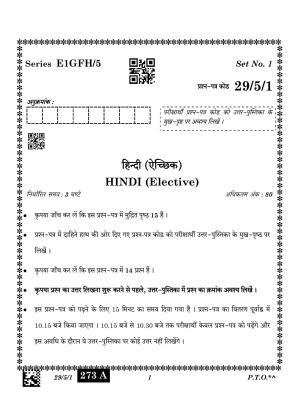 Series E1GFH/5
Set No. 1
प्रश्न-पत्र कोड 29/5/1
अनुक्रमांक :
परीक्षार्थी प्रश्न-पत्र कोड को उत्तर-पुस्तिका के
मुख-पृष्ठ पर अवश्य लिखें ।
हिन्दी (ऐच्छिक)
HINDI (Elective)
निर्धारित समय : 3 घण्टे
अधिकतम अंक : 80
• कृपया जाँच कर लें कि इस प्रश्न-पत्र में मुद्रित पृष्ठ 15 हैं ।
• प्रश्न-पत्र में दाहिने हाथ की ओर दिए गए प्रश्न-पत्र कोड को परीक्षार्थी उत्तर-पुस्तिका के मुख-पृष्ठ पर
लिखें ।
• कृपया जाँच कर लें कि इस प्रश्न-पत्र में 14 प्रश्न हैं ।
• कृपया प्रश्न का उत्तर लिखना शुरू करने से पहले, उत्तर-पुस्तिका में प्रश्न का क्रमांक अवश्य लिखें ।
• इस प्रश्न-पत्र को पढ़ने के लिए 15 मिनट का समय दिया गया है । प्रश्न-पत्र का वितरण पूर्वाह्न में
10.15 बजे किया जाएगा । 10.15 बजे से 10.30 बजे तक परीक्षार्थी केवल प्रश्न-पत्र को पढ़ेंगे और
इस अवधि के दौरान वे उत्तर-पुस्तिका पर कोई उत्तर नहीं लिखेंगे ।
29/5/1
273 A
1
P.T.O.*^